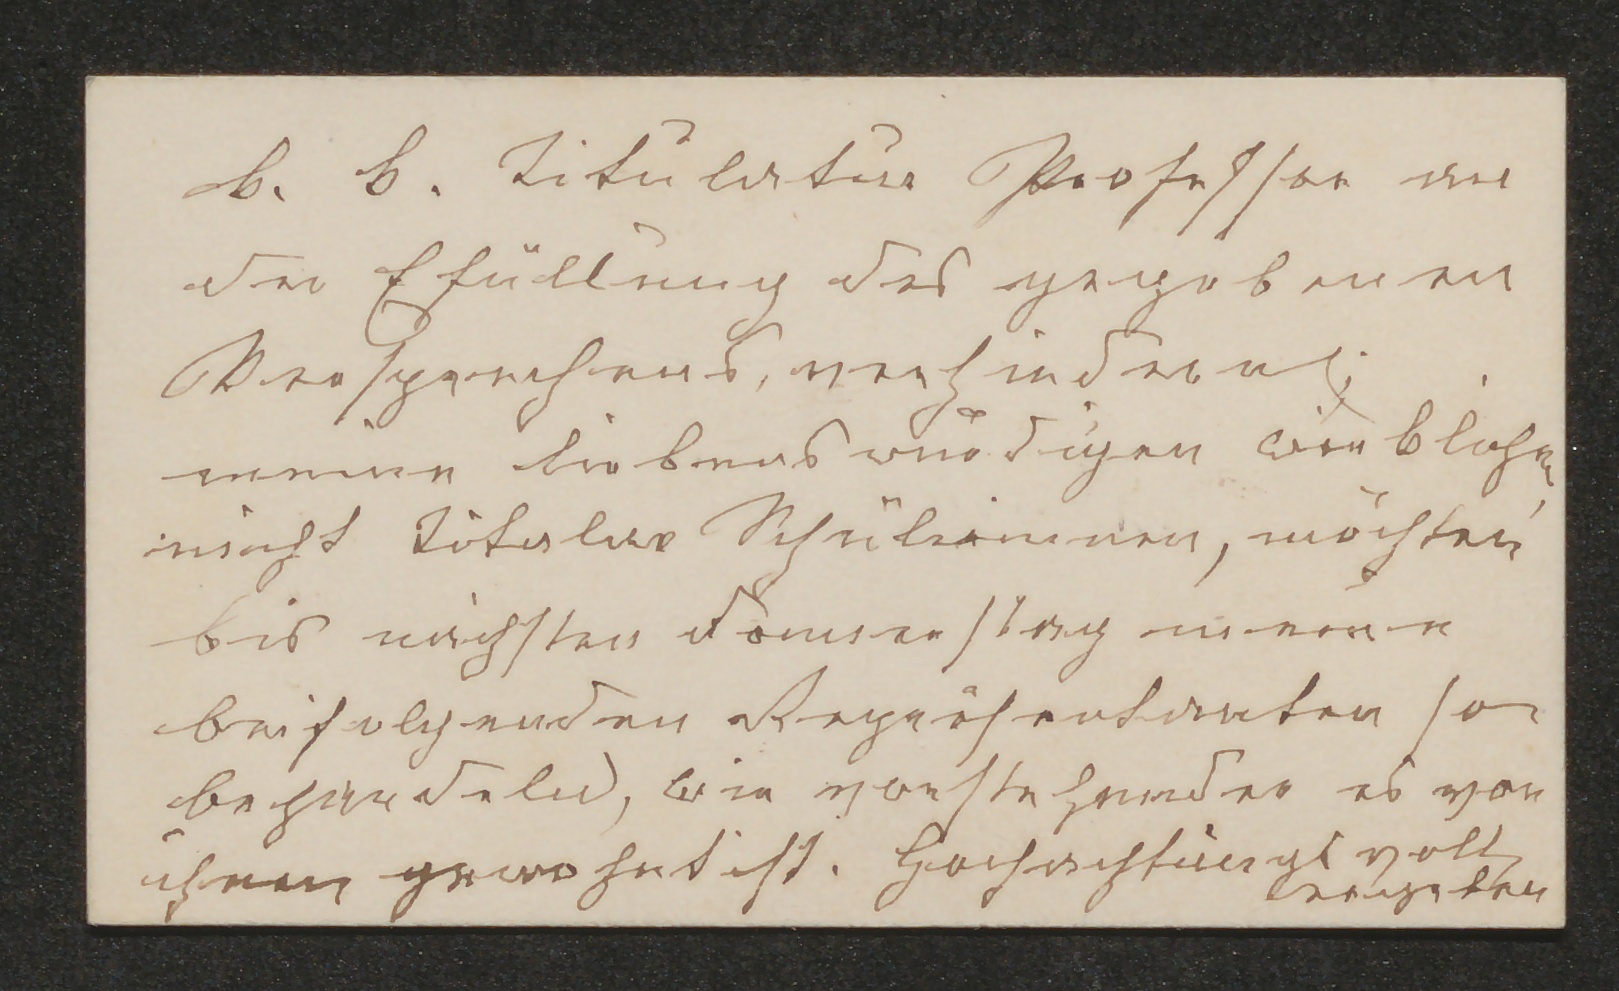 k. k. Titulatur Professor an
der Efüllung des gegebenen
Versprechens, verhindernt;
meine liebenswürdigen wirklichen
nicht Titular Schülerinnen, möchten
bis nächsten Donnerstag meine
beifolgenden Repräsentanten so
behandeln, wie vorstehender es von
ihnen gewohnt ist. Hochachtungsvoll
ergeben